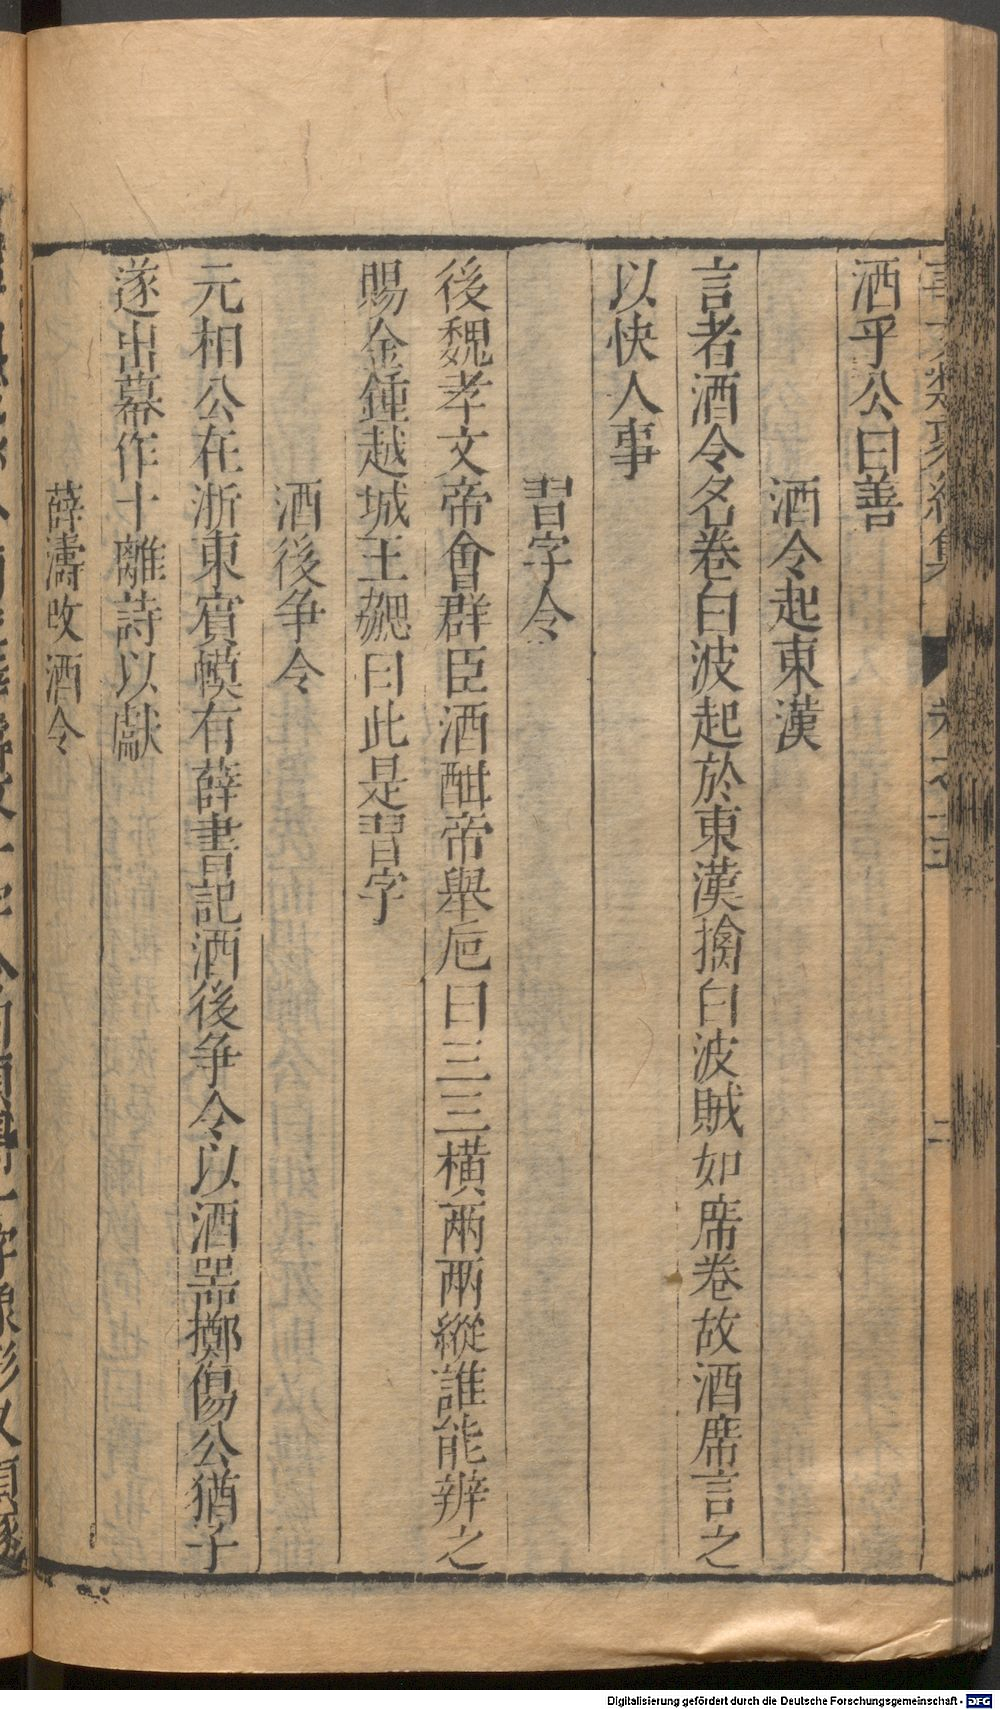 酒乎公曰善
酒令起東漢
言者酒令名卷白波起於東漢擒白波賊如席卷故酒席言之
以快人事
習字令
後魏孝文帝會群臣酒酣帝舉巵曰三三橫兩兩縱誰能辨之
賜金鍾越城王勰曰此是習字
酒後争令
元相公在浙東賓幙有薛書記酒後争令以酒器擲傷公猶子
遂出幕作十離詩以獻
薛濤改酒令
Digitalisierung gefördert durch die Deutsche Forschungsgemeinschaft - DFG